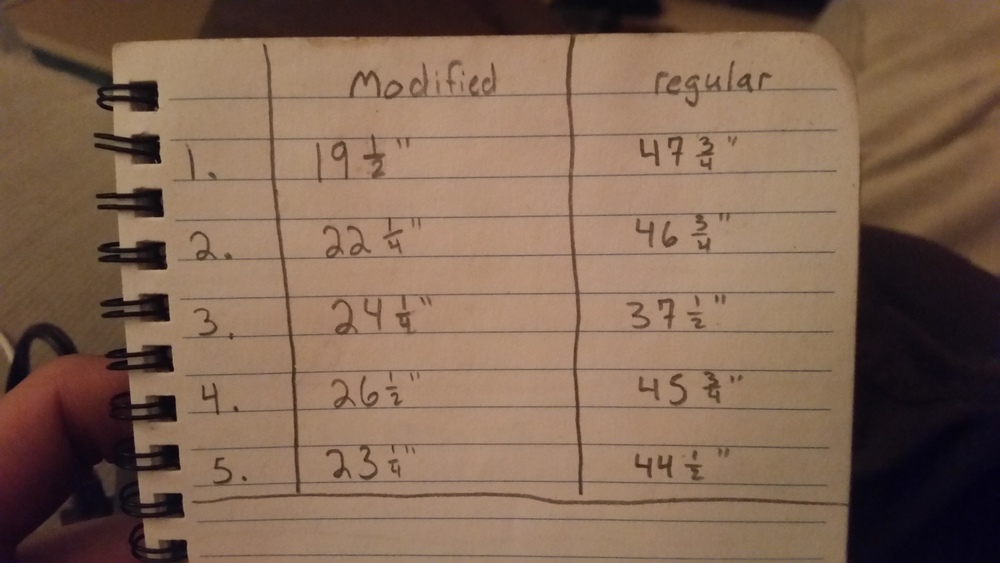 Modified regular
1. 19 1/2" 47 3/4"
2. 22 1/4" 46 3/4"
3. 24 1/4" 37 1/2"
4. 26 1/2" 45 3/4"
5. 23 1/4" 44 1/2"